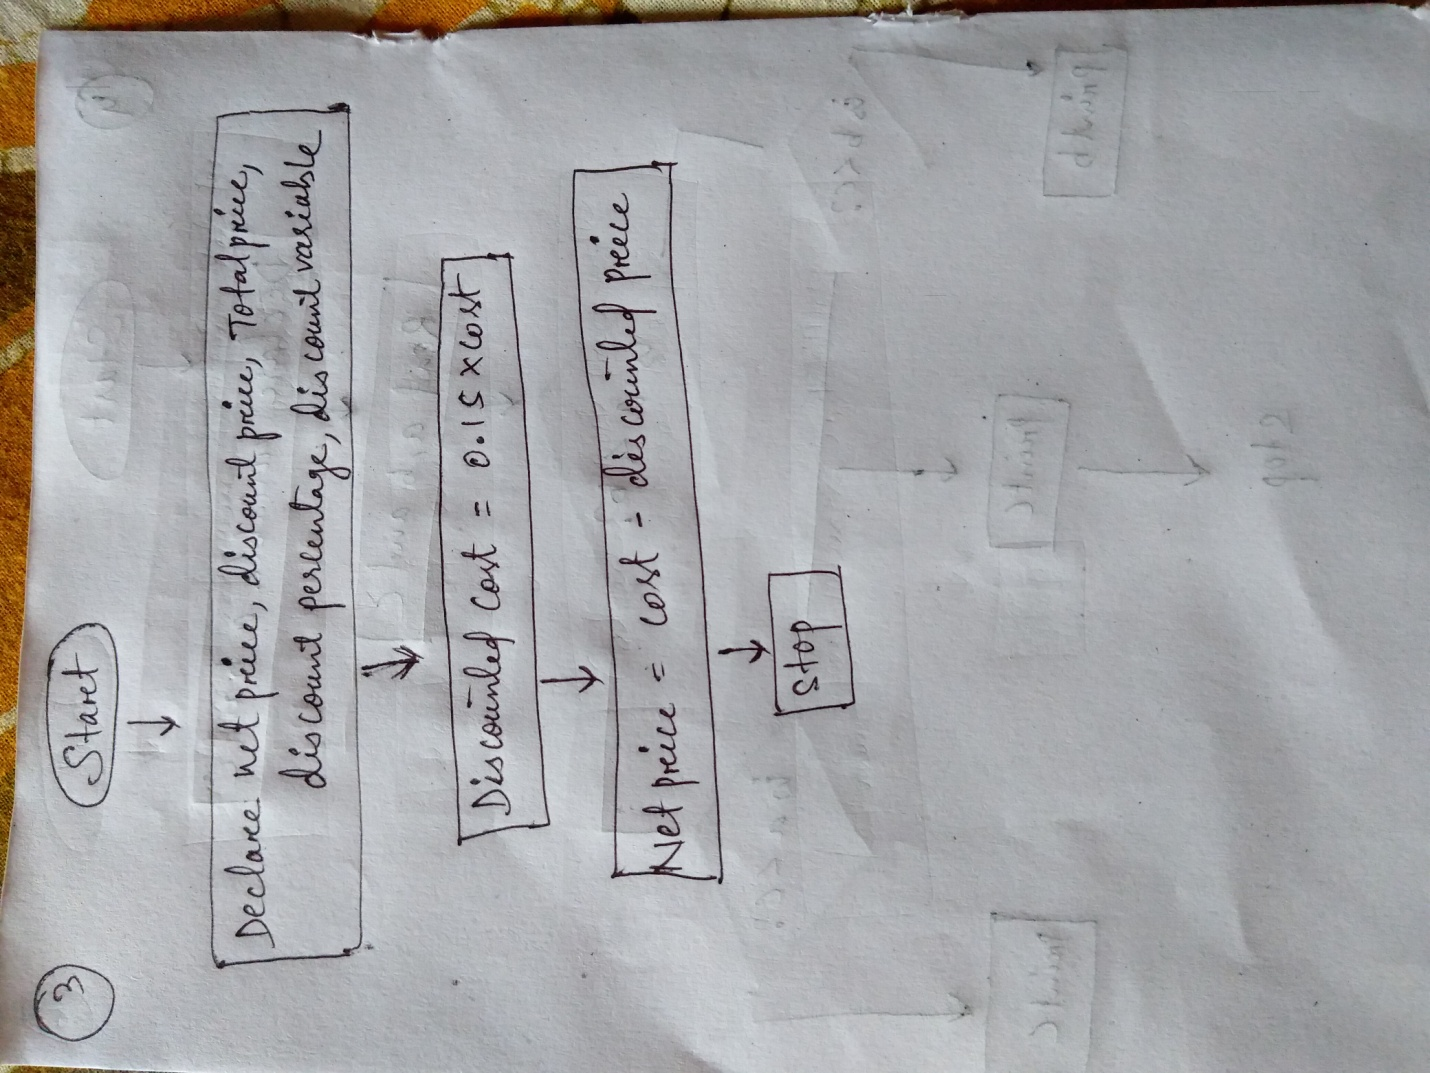 3
Start
Declare net price, discount price, Total price,
discount percentage, discount variable
Discounted Cost = 0.15 x cost
Net price = cost - discounted price
Stop